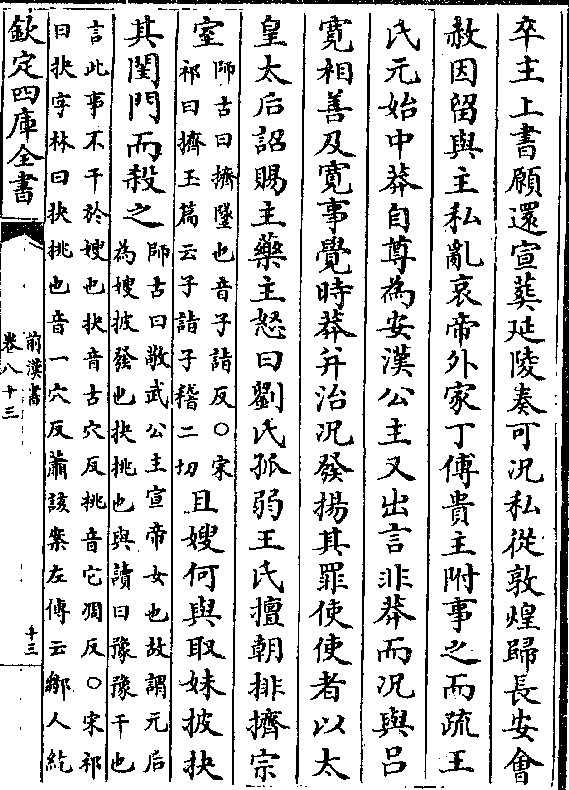 卒主上書願還宣葬延陵奏可況私從敦煌歸長安會
赦因留與主私亂哀帝外家丁傅貴主附事之而疏王
氏元始中莽自尊為安漢公主又出言非莽而況與吕
寛相善及寛事覺時莽并治況發揚其罪使使者以太
皇太后詔賜主藥主怒曰劉氏孤弱王氏擅朝排擠宗
室師古曰擠墜也音子詣反〇宋
祁曰擠玉篇云子詣子稽二切且嫂何與取妹披抉
其閨門而殺之師古曰敬武公主宣帝女也故謂元后
為嫂披發也抉挑也與讀曰豫豫干也
言此事不干於嫂也抉音古穴反挑音它凋反〇宋祁
曰抉字林曰抉挑也音一穴反蕭該案左傳云郰人紇
欽定四庫全書
前漢書
卷八十三
十三